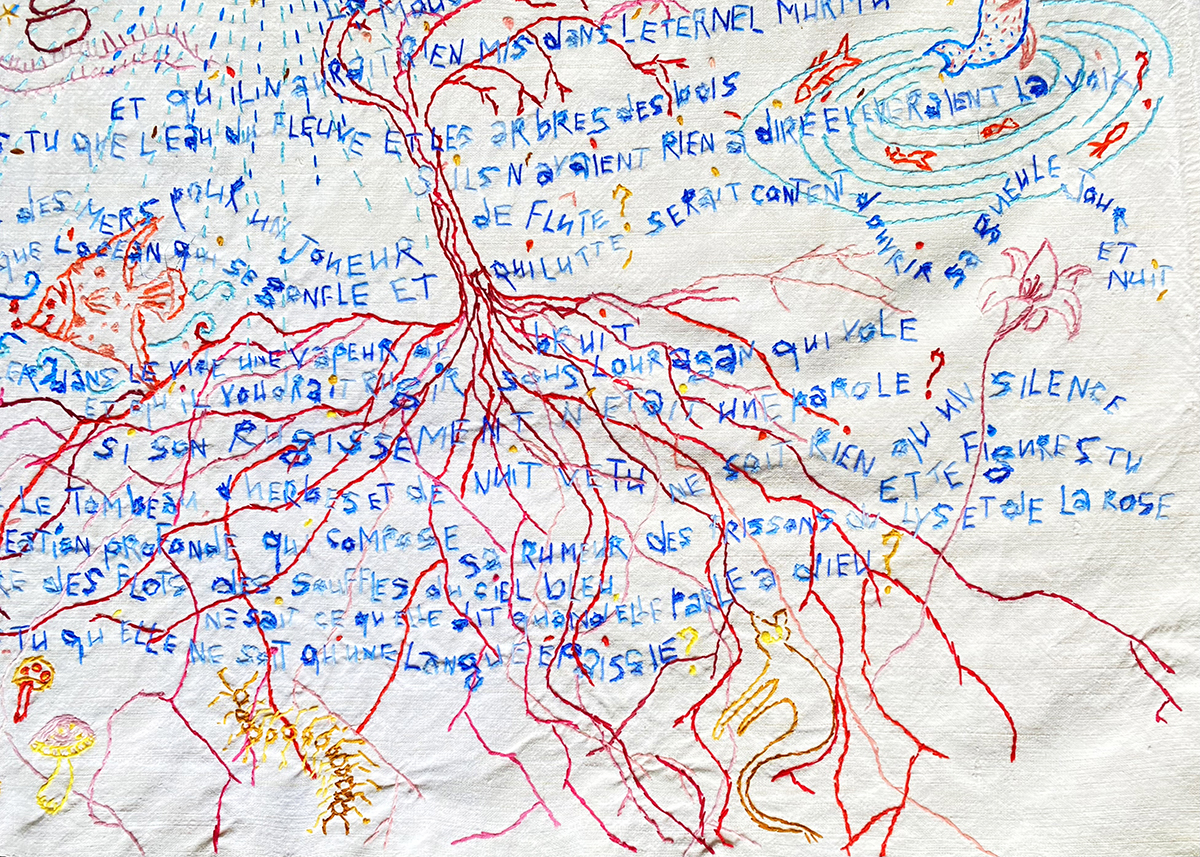 RIEN MIS DANS L ETERNEL MURMU
ET QU IL N AURAIT
S TU QUE L EAU DU FLEUVE ET LES ARBRES DES BOIS
S ILS N AVAIENT RIEN à DIRE ELEVERAIENT LA VOIX ?
DES MERS POUR UN JOUEUR DE FLUTE ?
QUE L OCEAN QUI SE GONFLE ET QUI LUTTE SERAIT CONTENT d OUVRIR Sa GUEULE JOUR ET NUIT
DANS LE VIDE UNE VAPEUR DE BRUIT
ET QU IL VOUDRAIT RUGIR SOUS L OURAGAN QUI VOLE
SI SON RUGISSEMENT N ETAIT UNE PAROLE ?
LE TOMBEAU d HERBES ET DE NUIT VETU NE SOIT RIEN QU UN SILENCE
ET TE FIGURES TU
EATION PROFONDE QUI COMPOSE Sa RUMEUR DES FRISSONS DU LYS ET DE LA ROSE
RE DES FLOTS DES SOUFFLES DU CIEL BLEU
NE SAIT CE QU ELLE DIT QUAND ELLE PARLE à DIEU ?
TU QU ELLE NE SOIT QU UNE LANGUE EPAISSIE ?